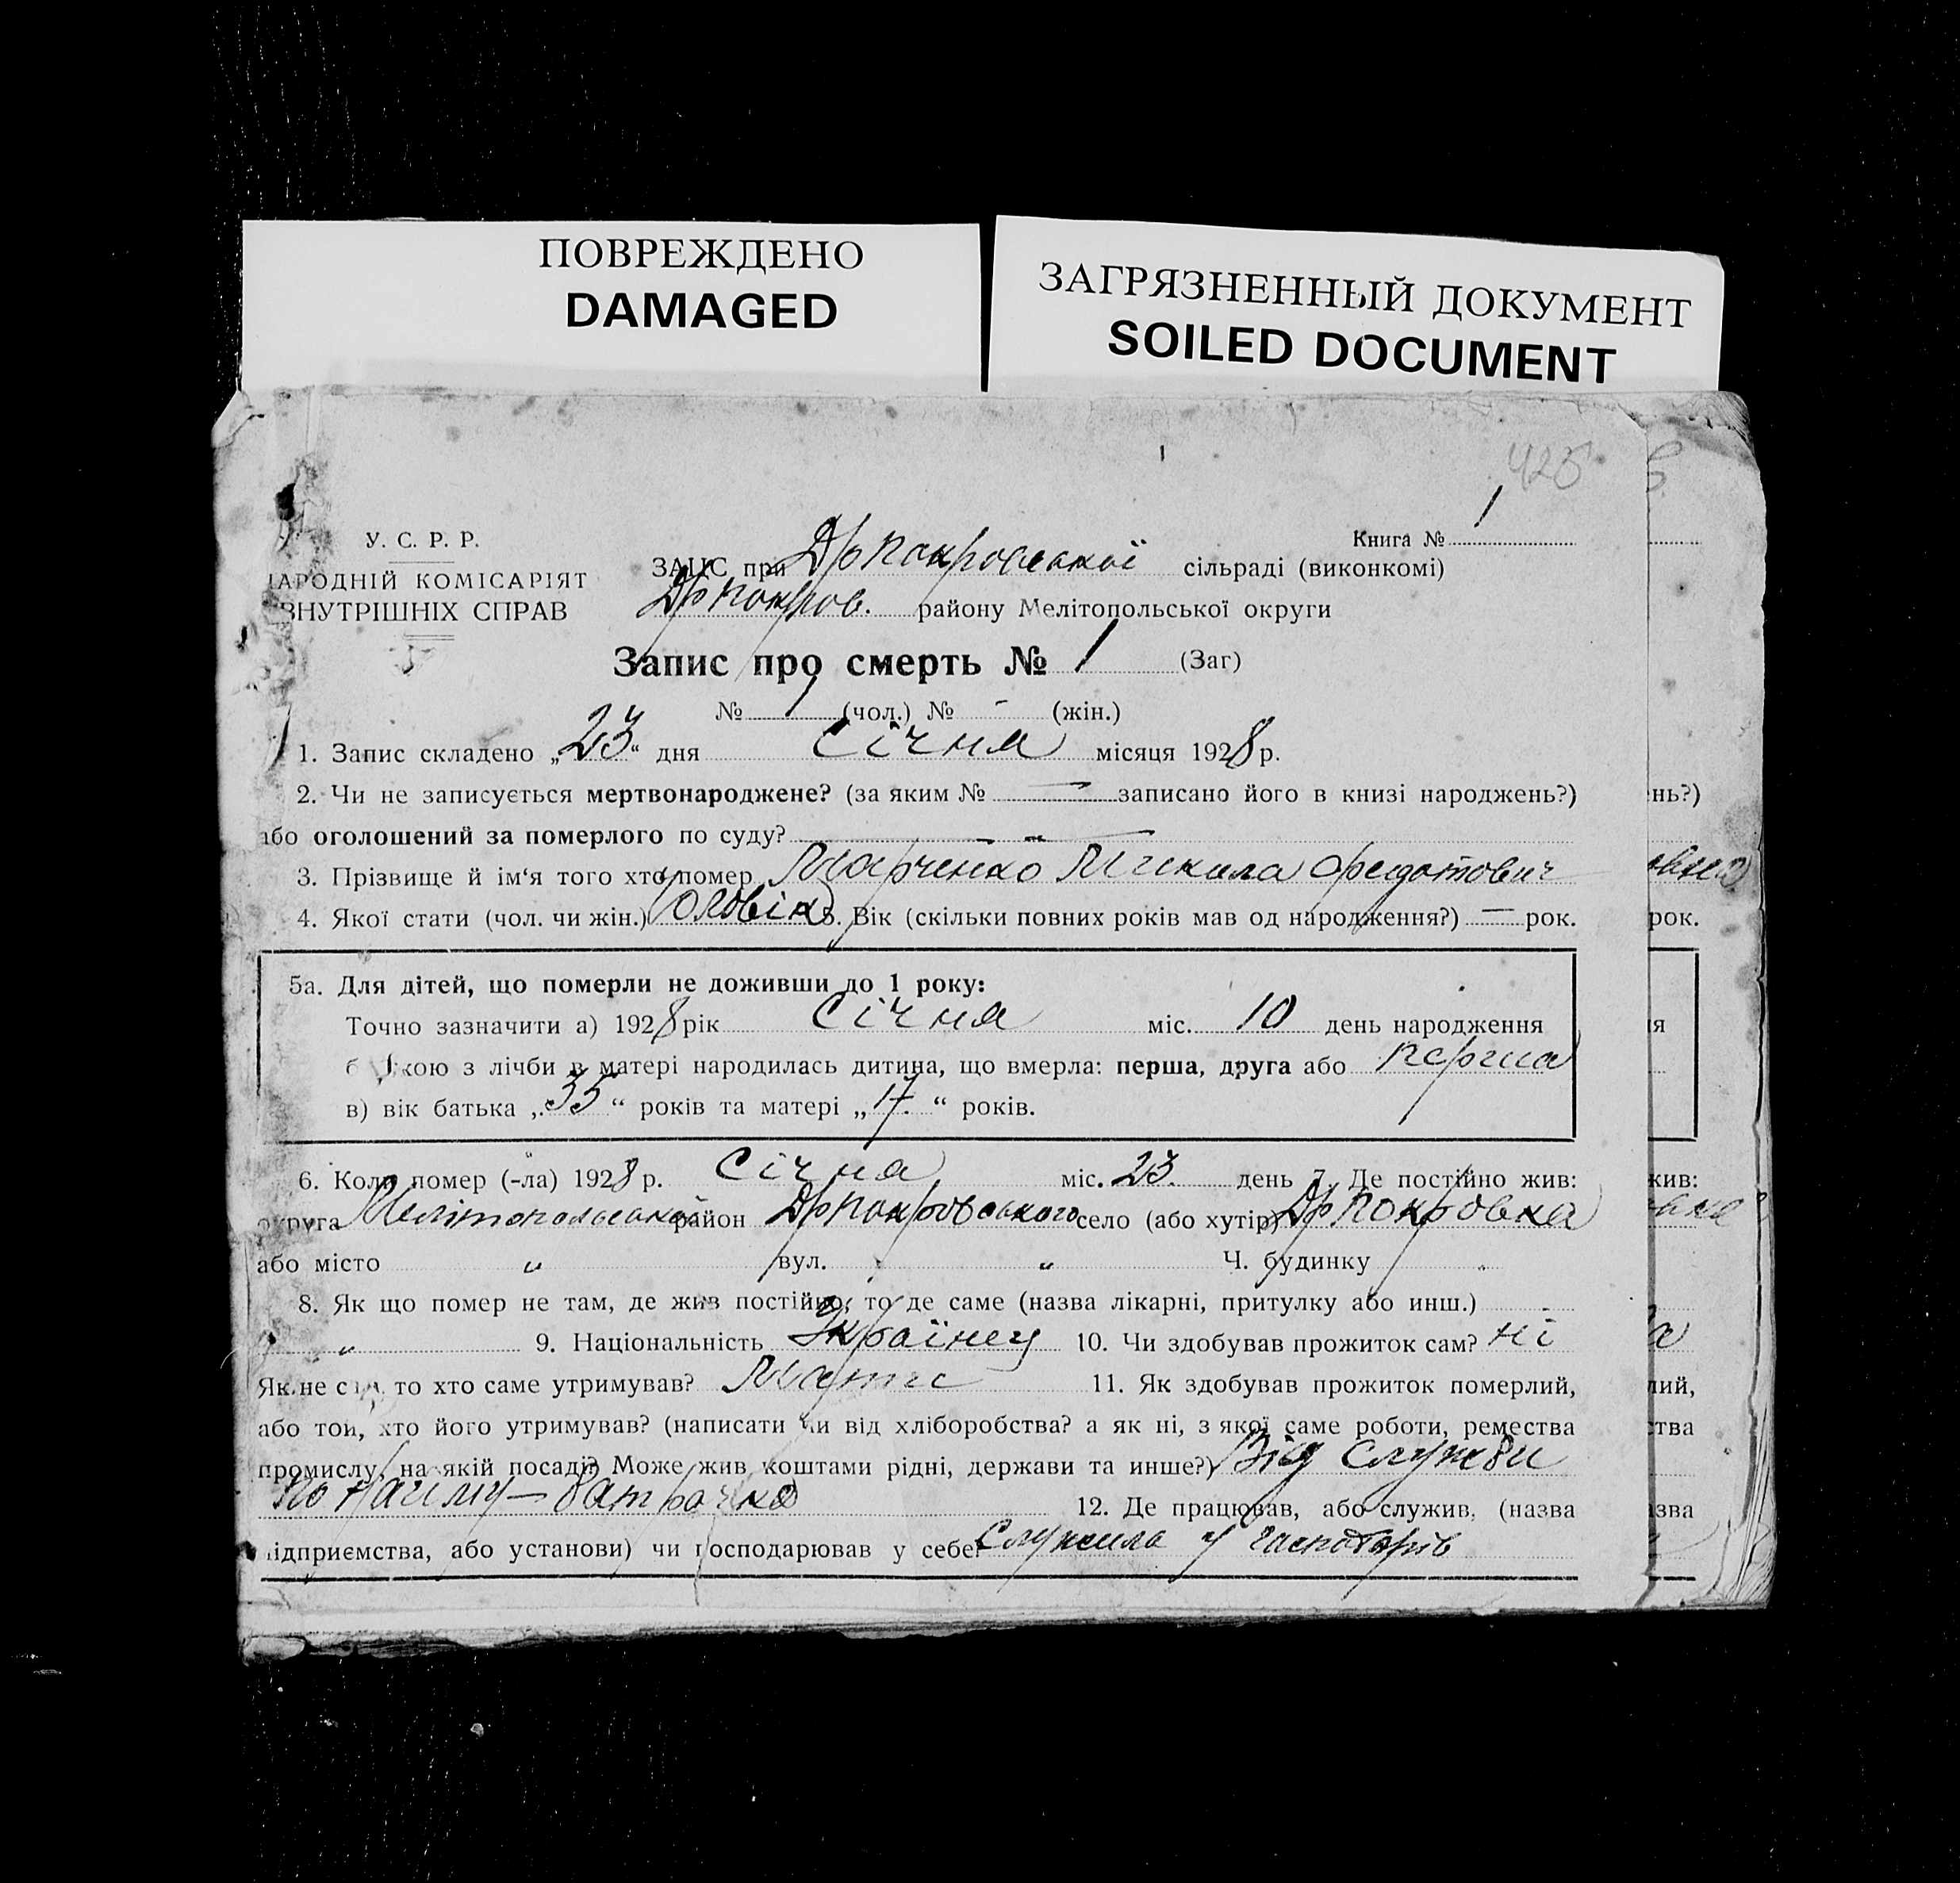 ПОВРЕЖДЕНО
DAMAGED
ЗАГРЯЗНЕННЫЙ ДОКУМЕНТ
SOILED DOCUMENT
425
У. С. Р. Р.
НАРОДНІЙ КОМІСАРІЯТ
ВНУТРІШНІХ СПРАВ
Книга № 1
ЗАЦС при Др Покровської сільраді (виконкомі)
Др Покров. району Мелітопольської округи
Запис про смерть № 1 (Заг)
№ 1 (чол.) № - (жін.)
1. Запис складено „23“ дня Січня місяця 1928 р.
2. Чи не записується мертвонароджене? (за яким № — записано його в книзі народжень?)
або оголошений за померлого по суду? — „ —
3. Прізвище й ім‘я того хто помер Марченко Микила Федотович
4. Якої стати (чол. чи жін.) Чоловік 5. Вік (скільки повних років мав од народження?) — рок.
5а. Для дітей, що померли не доживши до 1 року:
Точно зазначити а) 1928 рік Січня міс. 10 день народження
б) якою з лічби в матері народилась дитина, що вмерла: перша, друга або перша
в) вік батька „35“ років та матері „17.“ років.
6. Коли помер (-ла) 1928 р. Січня міс. 23. день 7. Де постійно жив:
округа Мелітопольської район Др Покровського село (або хутір) Др Покровка
або місто „ вул. „ Ч. будинку „
8. Як що помер не там, де жив постійно, то де саме (назва лікарні, притулку або инш.)
„ 9. Національність Українец 10. Чи здобував прожиток сам? ні
Як не сам, то хто саме утримував? Мати 11. Як здобував прожиток померлий,
або той, хто його утримував? (написати чи від хліборобства? а як ні, з якої саме роботи, ремества
промислу, на якій посаді? Може жив коштами рідні, держави та инше?) Від служби
по найму — батрачка 12. Де працював, або служив, (назва
підприємства, або установи) чи господарював у себе? Служила у господарів